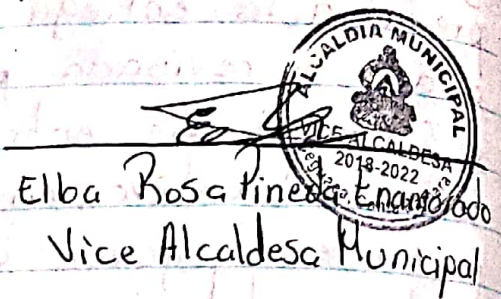 ALCALDIA MUNICIPAL
VICE ALCALDESA
2018-2022
Elba Rosa Pineda Enamorado
Vice Alcaldesa Municipal